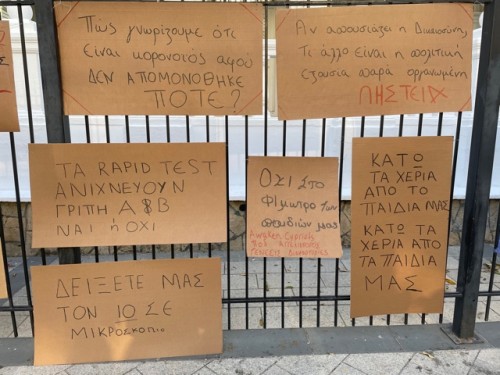 Πώς γνωρίζουμε ότι
είναι κορονοιός αφού
ΔΕΝ ΑΠΟΜΟΝΩΘΗΚΕ
ΠΟΤΕ?
Αν απουσιάζει η Δικαιοσύνη,
Τι άλλο είναι η πολιτική
εξουσία παρά οργανωμένη
ΛΗΣΤΕΙΑ
ΤΑ RAPID TEST
ΑΝΙΧΝΕΥΟΥΝ
ΓΡΙΠΗ, A $ B
ΝΑΙ ή ΟΧΙ
ΟΧΙ ΣΤΟ
ΦΙμωτρο των
παιδιών μας
ΚΑΤΩ
ΤΑ ΧΕΡΙΑ
ΑΠΟ ΤΟ
ΠΑΙΔΙΑ ΜΑΣ
ΚΑΤΩ ΤΑ
ΧΕΡΙΑ ΑΠΟ
ΤΑ ΠΑΙΔΙΑ
ΜΑΣ
ΔΕΙΞΕΤΕ ΜΑΣ
ΤΟΝ ΙΟ ΣΕ
ΜΙΚΡΟΣΚΟΠΙΟ